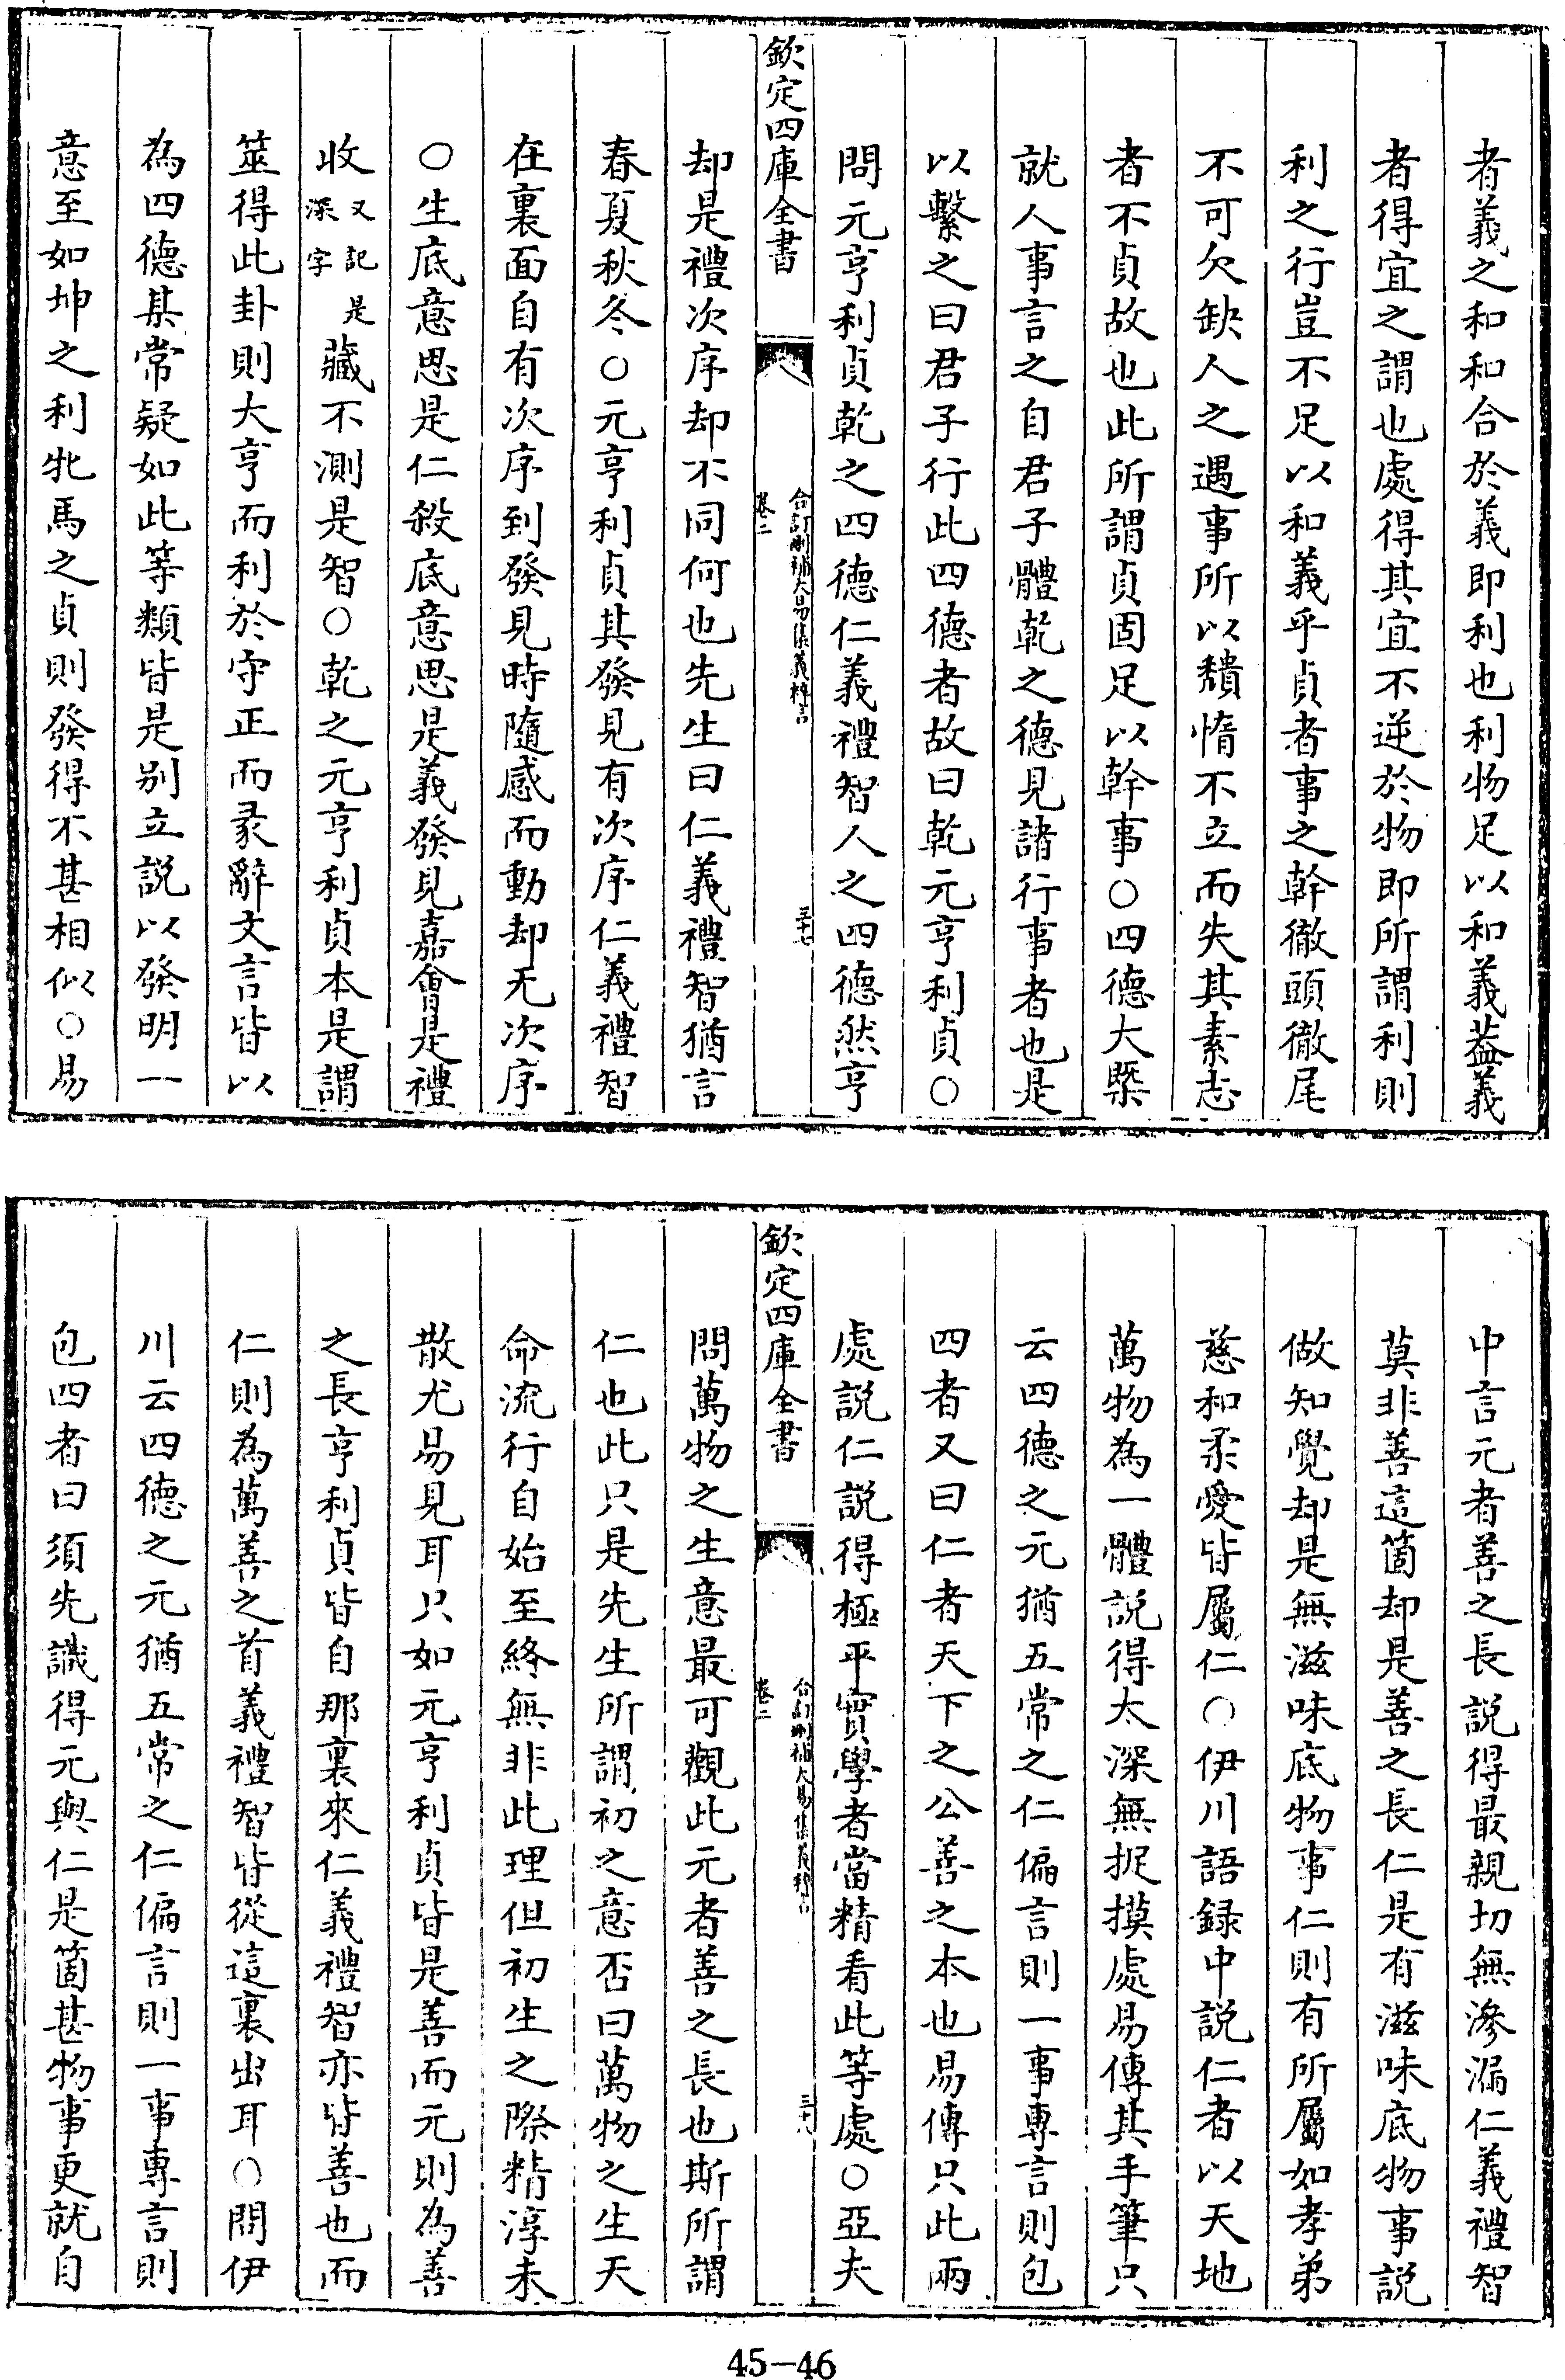 者義之和和合於義即利也利物足以和義葢義
者得宜之謂也處得其宜不逆於物即所謂利則
利之行豈不足以和義乎貞者事之幹徹頭徹尾
不可欠缺人之遇事所以頽惰不立而失其素志
者不貞故也此所謂貞固足以幹事○四德大槩
就人事言之自君子體乾之德見諸行事者也是
以繫之曰君子行此四德者故曰乾元亨利貞○
問元亨利貞乾之四德仁義禮智人之四德然亨
欽定四庫全書
合訂刪補大易集義粹言
卷二
三十七
却是禮次序却不同何也先生曰仁義禮智猶言
春夏秋冬○元亨利貞其發見有次序仁義禮智
在裏面自有次序到發見時隨感而動却无次序
○生底意思是仁殺底意思是義發見嘉會是禮
收又記是深字藏不測是智○乾之元亨利貞本是謂
筮得此卦則大亨而利於守正而彖辭文言皆以
為四德某常疑如此等類皆是别立說以發明一
意至如坤之利牝馬之貞則發得不甚相似○易
中言元者善之長説得最親切無滲漏仁義禮智
莫非善這箇却是善之長仁是有滋味底物事説
做知覺却是無滋味底物事仁則有所屬如孝弟
慈和柔愛皆屬仁○伊川語録中説仁者以天地
萬物為一體説得太深無捉摸處易傳其手筆只
云四德之元猶五常之仁偏言則一事專言則包
四者又曰仁者天下之公善之本也易傳只此兩
處説仁説得極平實學者當精看此等處○亞夫
欽定四庫全書
合訂刪補大易集義粹言
卷二
三十八
問萬物之生意最可觀此元者善之長也斯所謂
仁也此只是先生所謂初之意否曰萬物之生天
命流行自始至終無非此理但初生之際精淳未
散尤易見耳只如元亨利貞皆是善而元則為善
之長亨利貞皆自那裏來仁義禮智亦皆善也而
仁則為萬善之首義禮智皆從這裏出耳○問伊
川云四德之元猶五常之仁偏言則一事專言則
包四者曰須先識得元與仁是箇甚物事更就自
45-46